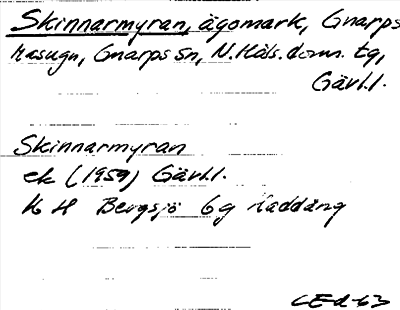 Skinnarmyran, ägomark, Gnarps
masugn, Gnarps sn, N. Häls. doms. tg,
Gävl.l.
Skinnarmyran
ek (1959) Gävl.l.
K H Bergsjö 6g
CEd-63